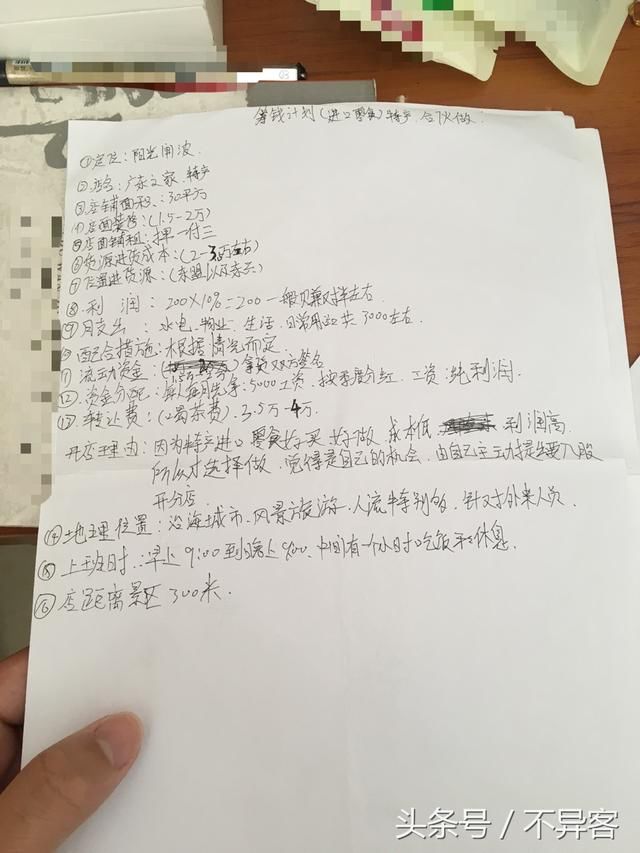 03
筹钱计划(进口零食)特产,合伙做.
①定位:阳光闸波.
②店名:广东之家.特产
③店铺面积:30平方
④店面装修:(1.5-2万)
⑤店面铺租:押一付三
⑥货源进货成本:(2-3万左右)
⑦位置进货源:(东盟以及东兴)
⑧利 润:200×10%=200 一般赚对半左右
⑨月支出:水电.物业.生活.日常用品共3000左右.
⑩配合措施:根据情况而定.
⑪流动资金:(1.5万)拿货双方签名
⑫资金分配:每人每月先拿:5000工资.按季度分红.工资:纯利润.
⑬转让费:(喝茶费).3.5万-4万.
开店理由:因为特产进口零食好买.好做.成本低 利润高.
所以才选择做.觉得是自己的机会.由自己主动提出要入股
开分店.
⑭地理位置:沿海城市.风景旅游.人流特别多.针对外来人员.
⑮上班时:早上9:00到晚上9:00.中间有一个小时吃饭和休息.
⑯店距离景区300米.
头条号/不异客